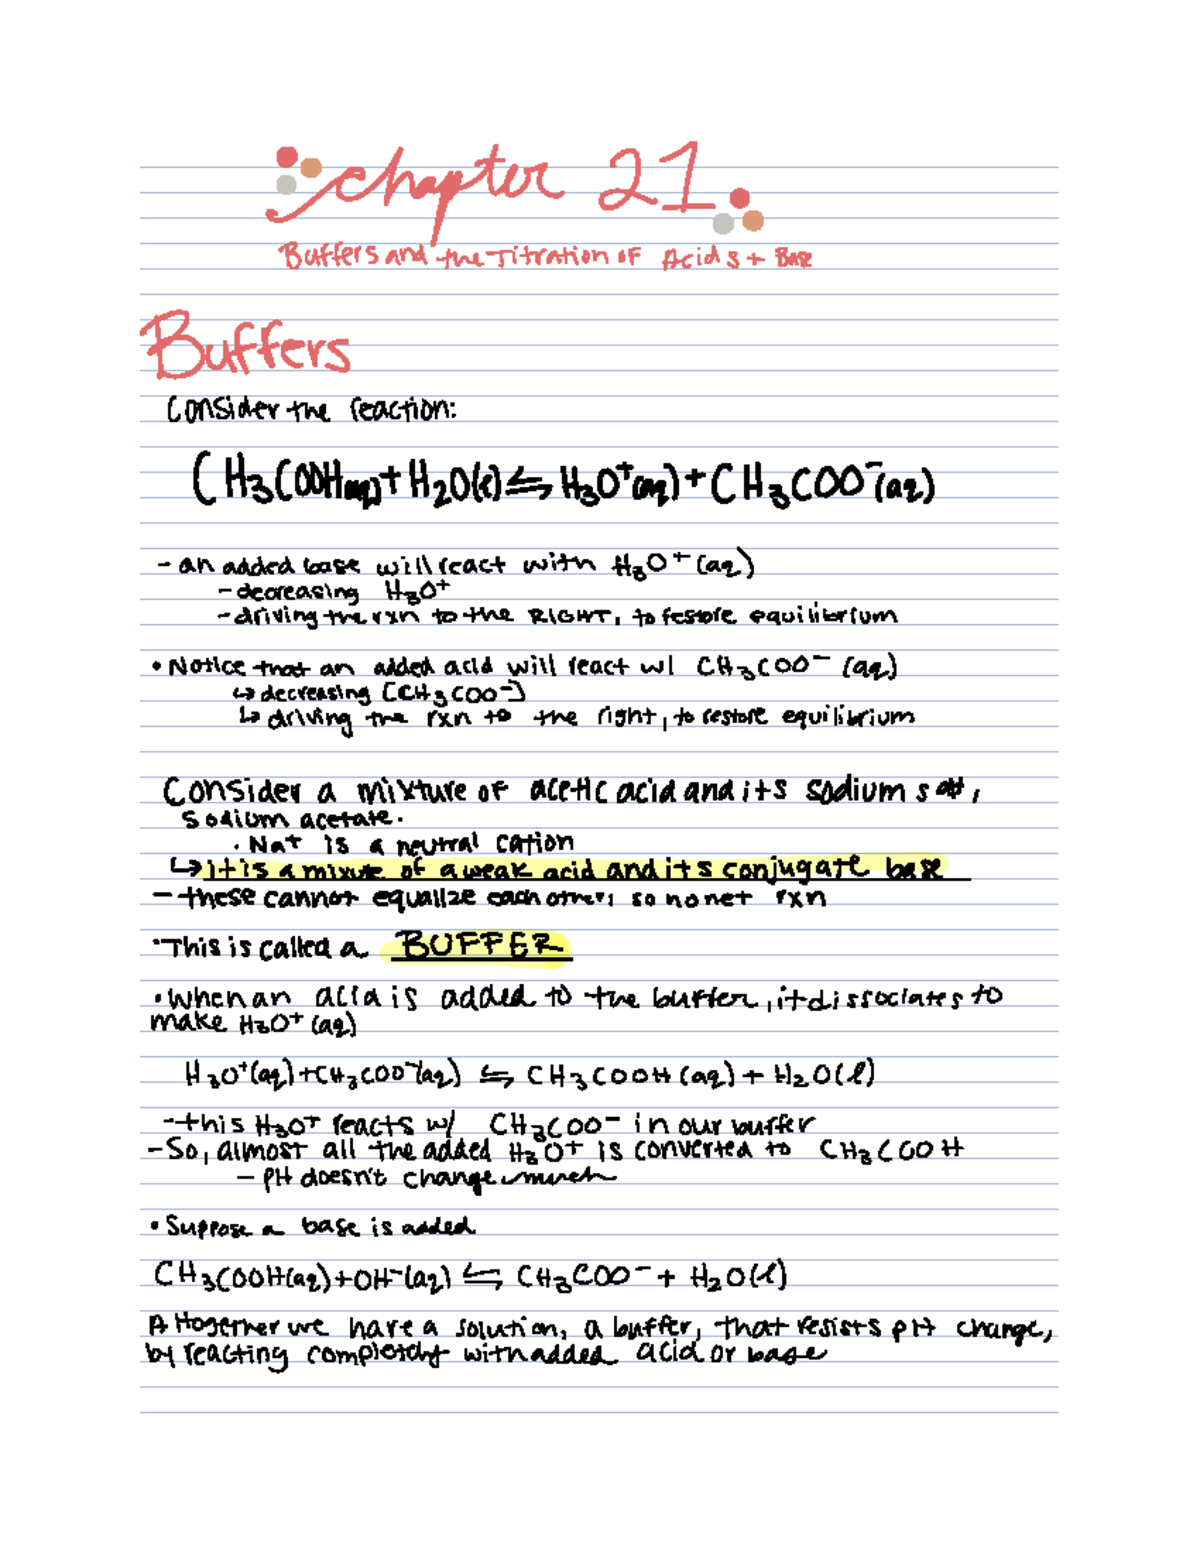 chapter 21
Buffers and the Titration of Acids + Base
Buffers
Consider the reaction:
CH₃COOH(aq) + H₂O(l) ⇌ H₃O⁺(aq) + CH₃COO⁻(aq)
- an added base will react with H₃O⁺ (aq)
- decreasing H₃O⁺
- driving the rxn to the RIGHT, to restore equilibrium
• Notice that an added acid will react w/ CH₃COO⁻ (aq)
↳ decreasing [CH₃COO⁻]
↳ driving the rxn to the right, to restore equilibrium
Consider a mixture of acetic acid and its sodium salt,
sodium acetate.
• Na⁺ is a neutral cation
↳ it is a mixture of a weak acid and its conjugate base
- these cannot equalize each other, so no net rxn
• This is called a BUFFER
• When an acid is added to the buffer, it dissociates to
make H₃O⁺ (aq)
H₃O⁺(aq) + CH₃COO⁻(aq) ⇌ CH₃COOH (aq) + H₂O(l)
- this H₃O⁺ reacts w/ CH₃COO⁻ in our buffer
- So, almost all the added H₃O⁺ is converted to CH₃COOH
- pH doesn't change much
• Suppose a base is added
CH₃COOH(aq) + OH⁻(aq) ⇌ CH₃COO⁻ + H₂O(l)
Altogether we have a solution, a buffer, that resists pH change,
by reacting completely with added acid or base